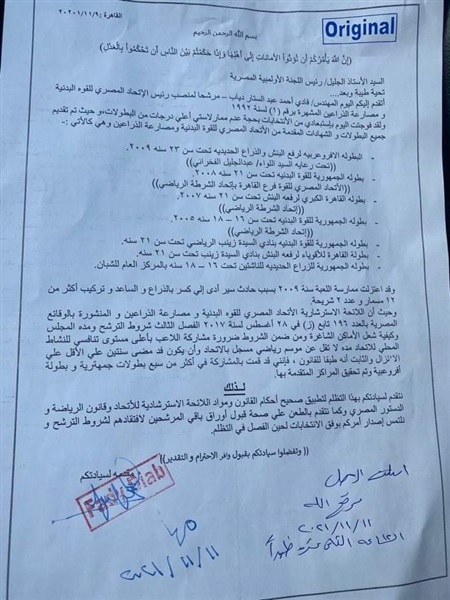 القاهرة :٢٠٢٠١/١١/٩
Original
بسم الله الرحمن الرحيم
(إِنَّ اللَّهَ يَأْمُرُكُمْ أَن تُؤَدُّوا الْأَمَانَاتِ إِلَى أَهْلِهَا وَإِذَا حَكَمْتُم بَيْنَ النَّاسِ أَن تَحْكُمُوا بِالْعَدْلِ)
السيد الأستاذ الجليل/ رئيس اللجنة الأولمبية المصرية
تحية طيبة وبعد...
أتقدم إليكم اليوم المهندس/ فادي أحمد عبد الستار دياب – مرشحا لمنصب رئيس الإتحاد المصري للقوه البدنية
و مصارعة الذراعين المشهرة برقم (١) لسنة ١٩٩٢
ولقد فوجئت اليوم بإستبعادي من الأنتخابات بحجة عدم ممارستي أعلي درجات من البطولات،و حيث تم تقديم
جميع البطولات و الشهادات المقدمة من الأتحاد المصري للقوة البدنية ومصارعة الذراعين وهي كالأتي:-
- البطوله الافروعربيه لرفع البنش والذراع الحديديه تحت سن ٢٣ سنه ٢٠٠٩.
((تحت رعايه السيد اللواء/ عبدالجليل الفخراني))
- بطولة الجمهورية للقوة البدنيه تحت سن ٢١ سنه ٢٠٠٨.
((الأتحاد المصري للقوة فرع القاهرة بإتحاد الشرطة الرياضي))
- بطوله القاهره الكبري لرفعه البنش تحت سن ٢١ سنه ٢٠٠٧.
((إتحاد الشرطة الرياضي))
- بطولة الجمهورية للقوة البدنيه تحت سن ١٦ – ١٨ سنه ٢٠٠٥
((إتحاد الشرطة الرياضي))
- بطولة الجمهورية للقوة البدنيه بنادي السيدة زينب الرياضي تحت سن ٢١ سنه.
- بطولة القاهرة للأقوياء لرفعه البنش بنادي السيدة زينب تحت سن ٢١ سنه.
- بطولة الجمهورية للزراع الحديديه للناشئين تحت ١٦ – ١٨ سنه بالمركز العام للشبان.
وقد اعتزلت ممارسة اللعبة سنة ٢٠٠٩ بسبب حادث سير أدى إلي كسر بالذراع و الساعد و تركيب أكثر من
١٢ مسمار و عدد ٢ شريحة.
وحيث أن اللائحة الاسترشادية للأتحاد المصري للقوه البدنيه و مصارعة الذراعين و المنشورة بالوقائع
المصرية بالعدد ١٩٦ تابع (ز) في ٢٨ أغسطس لسنة ٢٠١٧ الفصل الثالث شروط الترشح ومده المجلس
وكيفية شغل الأماكن الشاغرة ومن ضمن الشروط ضرورة مشاركة اللاعب بأعلى مستوى تنافسي للنشاط
المحلي للاتحاد مده لا تقل عن موسم رياضي مسجل بالاتحاد وأن يكون قد مضى سنتين علي الأقل علي
الاعتزال والثابت أنه طبقا للقانون ، فإنني قد قمت بالمشاركة في أكثر من سبع بطولات جمهترية و بطولة
أفروعية وتم تحقيق المراكز المتقدمة بها.
لـذلك
نتقدم لسيادتكم بهذا التظلم لتطبيق صحيح أحكام القانون ومواد اللائحة الاسترشادية للأتحاد وقانون الرياضة و
الدستور المصري وكما نتقدم بالطعن علي صحة قبول أوراق باقي المرشحين لافتقادهم لشروط الترشح و
نلتمس إصدار أمركم بوفق الانتخابات لحين الفصل في التظلم.
((وتفضلوا سيادتكم بقبول وافر الاحترام و التقدير))
مقدمه لسيادتكم
استلمت الأصل
٢٠٢١/١١/١١
٢٠٢١/١١/١١